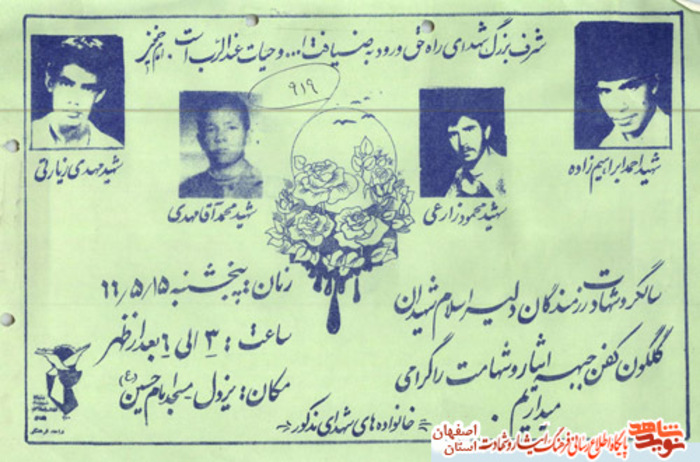 شرف بزرگ شهدای راه حق ورود به ضیافت ا... و حیات عند الرب است. امام خمینی
۹۱۹
شهید احمد ابراهیم زاده
شهید محمود زارعی
شهید محمد آقا مهدی
شهید مهدی زیارتی
سالگرد شهادت رزمندگان دلیر اسلام شهیدان
گلگون کفن جبهه ایثار و شهامت را گرامی
میداریم
زمان: پنجشنبه ۶۶/۵/۱۵
ساعت: ۳ الی ۶ بعد از ظهر
مکان: یزدل - مسجد امام حسین (ع)
خانواده های شهدای مذکور
نوید شاهد
پایگاه اطلاع رسانی فرهنگ ایثار و شهادت استان اصفهان